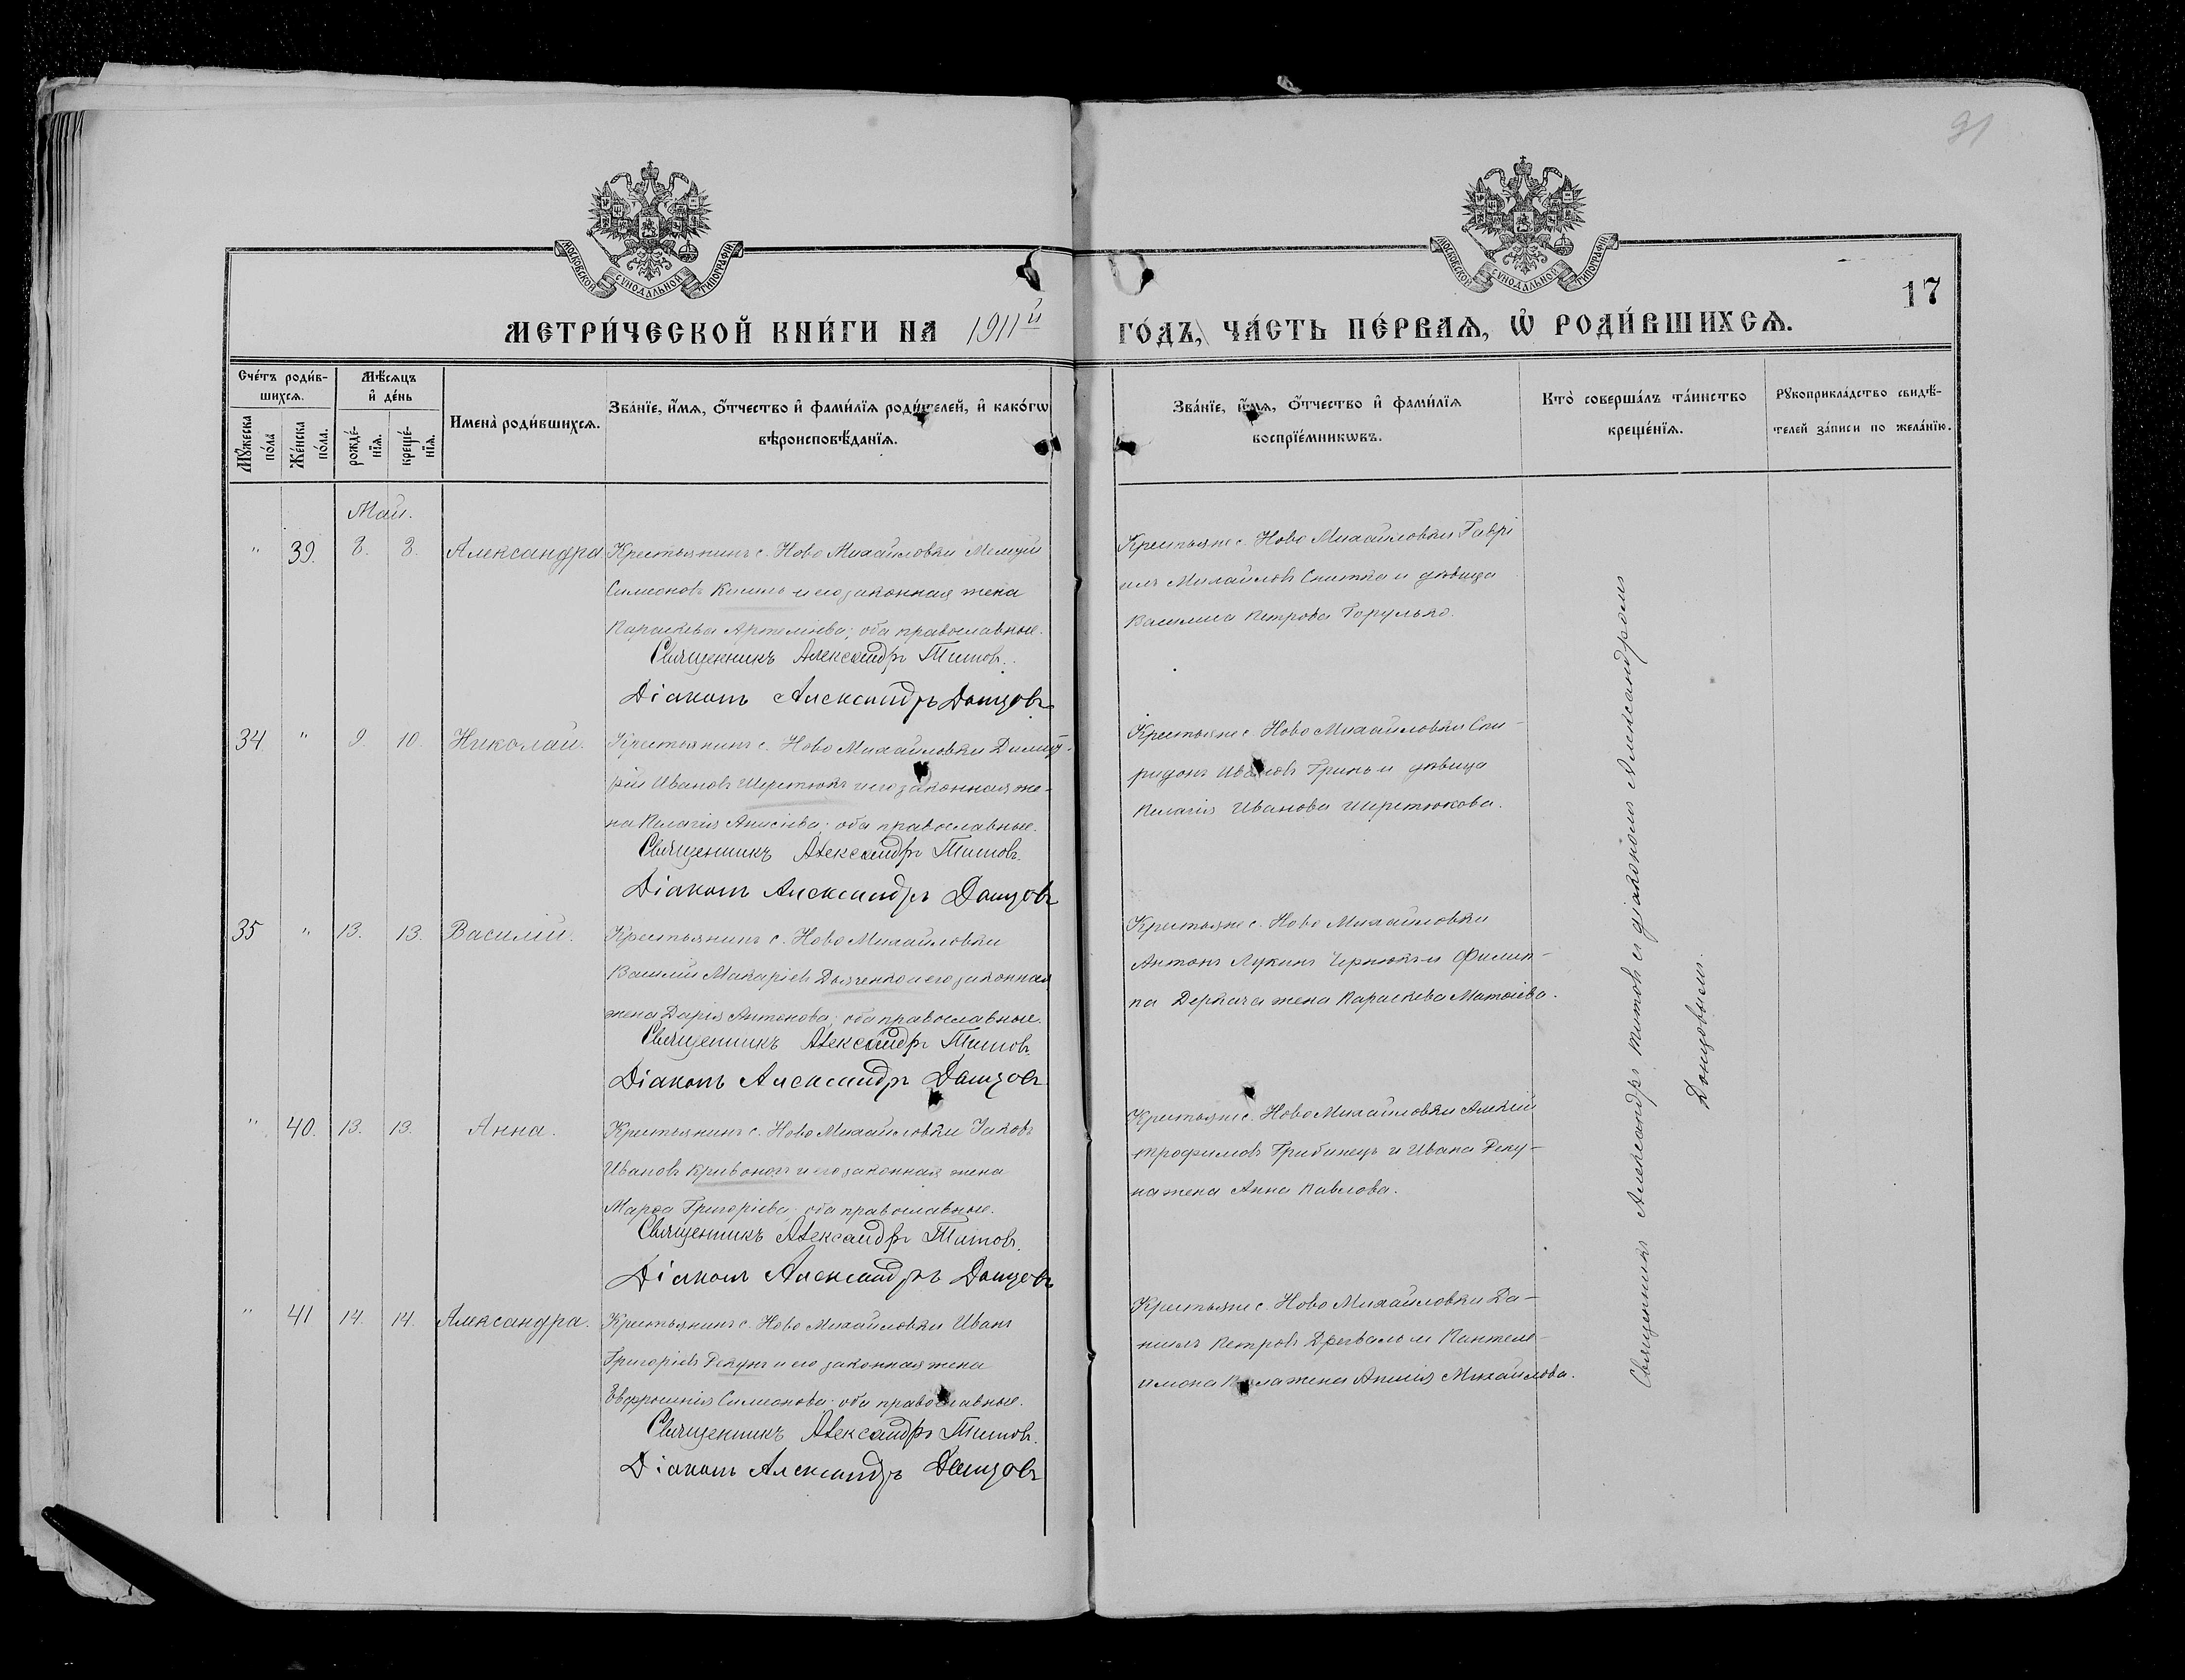 91
МОСКОВСКОЙ СУНОДАЛЬНОЙ ТИПОГРАФІИ
МОСКОВСКОЙ СУНОДАЛЬНОЙ ТИПОГРАФІИ
17
МЕТРИ́ЧЕСКОЙ КНИ́ГИ НА 1911й ГО́ДЪ, ЧА́СТЬ ПЕ́РВАѦ, Ѡ҆ РОДИ́ВШИХСѦ.
Сче́тъ роди́в-
шихсѧ.
Мѣ́сѧцъ
и҆ де́нь
Мꙋ́жеска
по́ла
Же́нска
по́ла.
рожде́-
нїѧ.
креще́-
нїѧ.
Имена̀ роди́вшихсѧ.
Зва́нїе, и҆́мѧ, ѻ҆́тчество и҆ фами́лїѧ роди́телей, и҆ како́гѡ
вѣроисповѣ́данїѧ.
Зва́нїе, и҆́мѧ, ѻ҆́тчество и҆ фами́лїѧ
воспрїе́мникѡвъ.
Кто̀ соверша́лъ та́инство
креще́нїѧ.
Рꙋкоприкла́дство свидѣ́-
телей за́писи по жела́нїю.
Май.
" 39. 8. 8. Александра
Крестьянинъ с. Ново Михайловки
Симеоновъ Кисиль и его законная жена
Параскева Артеміева; оба православные.
Священникъ Александръ Титовъ.
Діаконъ Александръ Донцовъ
Крестьяне с. Ново Михайловки Гаврі
илъ Михайловъ Скитка и дѣвица
Василиса Петрова Горулько.
34 " 9. 10. Николай.
Крестьянинъ с. Ново Михайловки Димит-
рій Ивановъ Шерстюкъ и его законная же-
на Пелагія Анисіева; оба православные.
Священникъ Александръ Титовъ.
Діаконъ Александръ Донцовъ
Крестьяне с. Ново Михайловки Спи-
ридонъ Ивановъ Гринь и дѣвица
Пелагія Иванова Шерстюкова.
35 " 13. 13. Василій.
Крестьянинъ с. Ново Михайловки
Василій Макаріевъ Дьяченко и его законная
жена Дарія Антонова; оба православные.
Священникъ Александръ Титовъ
Діаконъ Александръ Донцовъ
Крестьяне с. Ново Михайловки
Антонъ Лукинъ Чернюкъ и Филип-
па Деркача жена Параскева Матѳіева.
" 40. 13. 13. Анна.
Крестьянинъ с. Ново Михайловки Іаковъ
Ивановъ Кривоносъ и его законная жена
Марѳа Григоріева; оба православные.
Священникъ Александръ Титовъ.
Діаконъ Александръ Донцовъ
Крестьяне с. Ново Михайловки Алексій
Трофимовъ Грибинецъ и Ивана Реку-
на жена Анна Павлова.
" 41 14. 14. Александра.
Крестьянинъ с. Ново Михайловки Иванъ
Григоріевъ Рекунъ и его законная жена
Евфросинія Симеонова; оба православные.
Священникъ Александръ Титовъ.
Діаконъ Александръ Донцовъ
Крестьяне с. Ново Михайловки Да-
ніилъ Петровъ Дрегваль и Пантеле-
имона жена Михайлова.
Священникъ Александръ Титовъ съ діакономъ Александромъ
Донцовымъ.